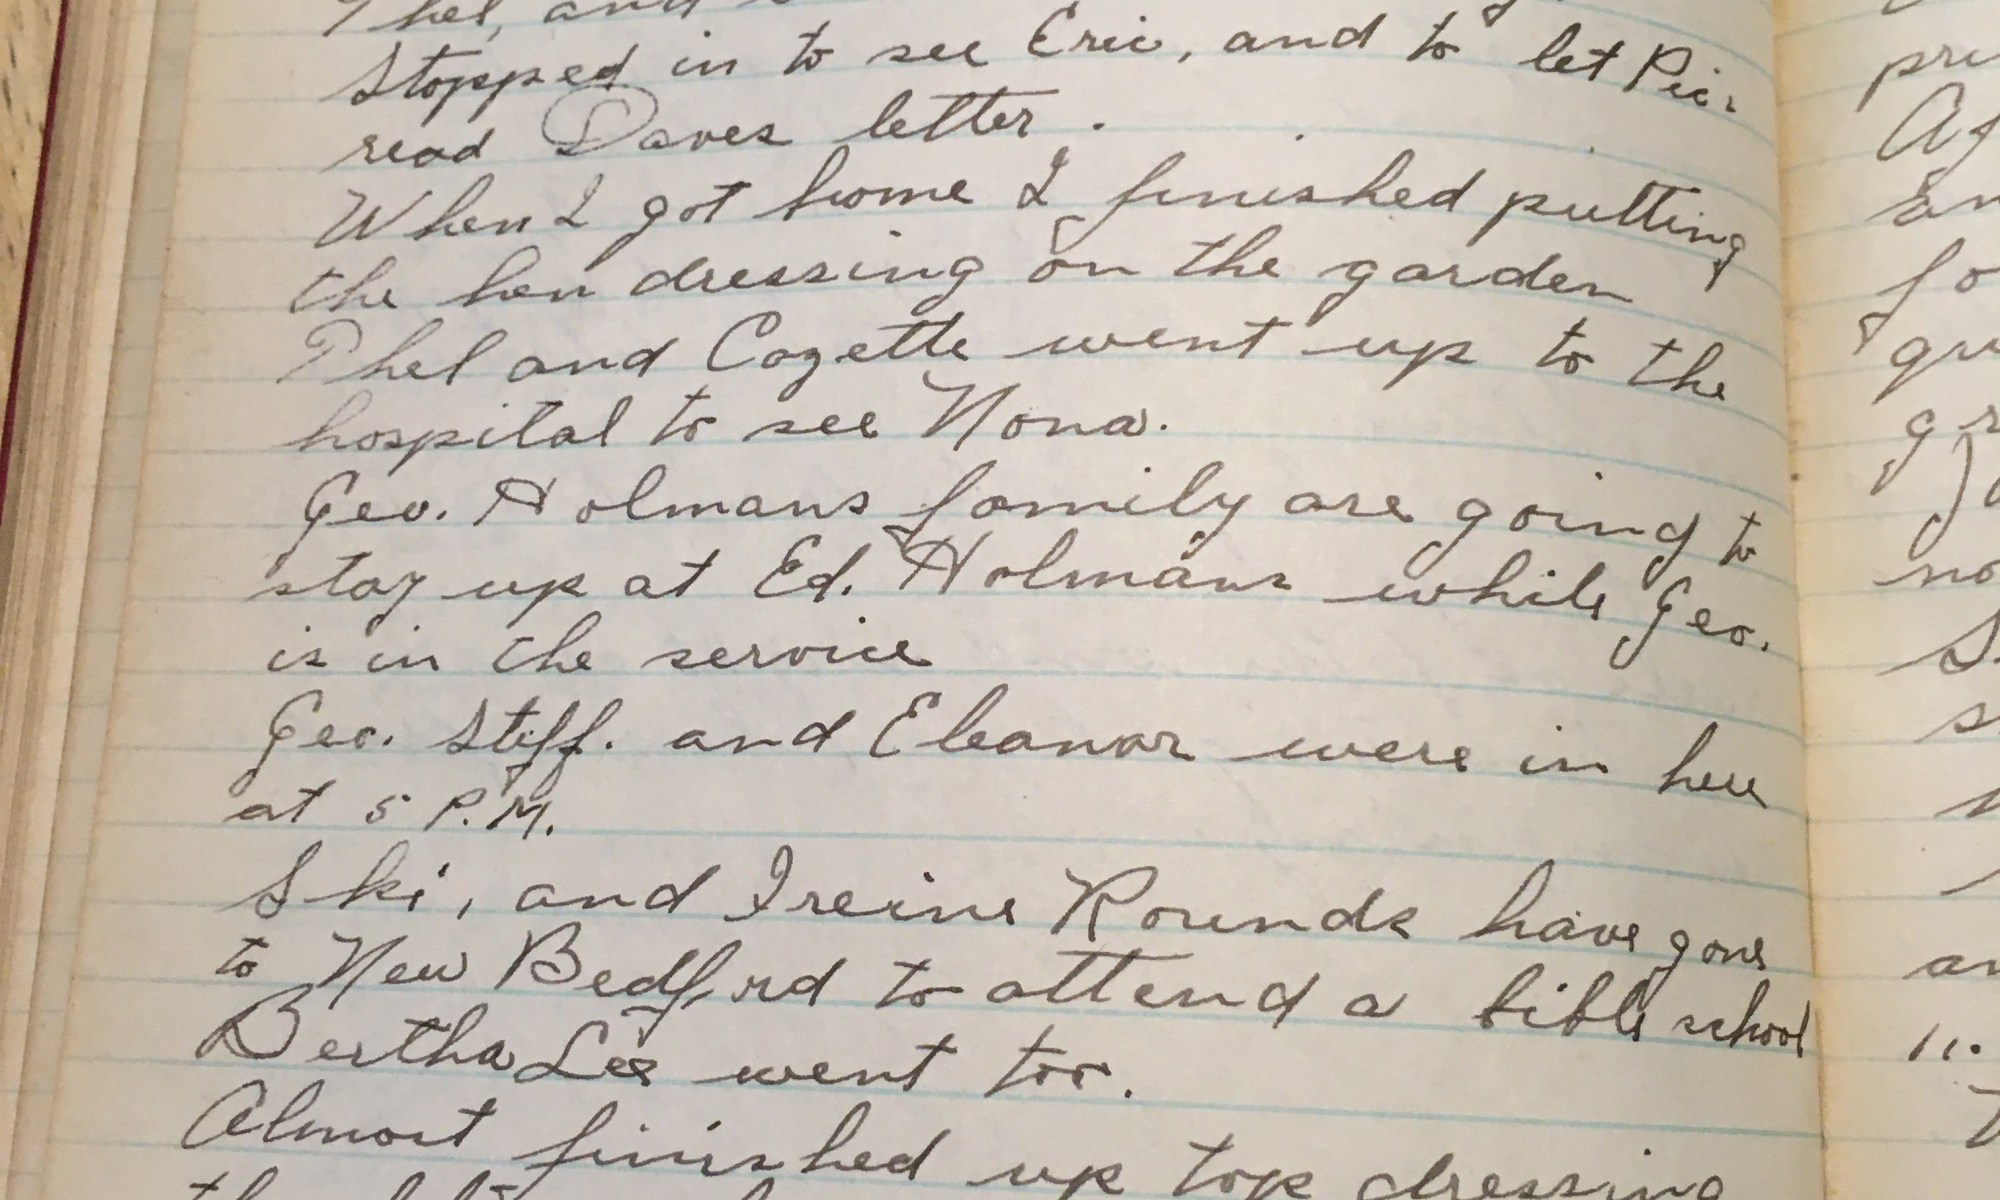 Phel, and
Stopped in to see Eric, and to let Pier
read Daves letter.
When I got home I finished putting
the hen dressing on the garden
Phel and Cozette went up to the
hospital to see Nona.
Geo. Holmans family are going to
stay up at Ed. Holmans while Geo.
is in the service
Geo. Stiff. and Eleanor were in here
at 5 P.M.
Ski, and Ireine Rounds have gone
to New Bedford to attend a bible school
Bertha Lee went too.
Almost finished up top dressing